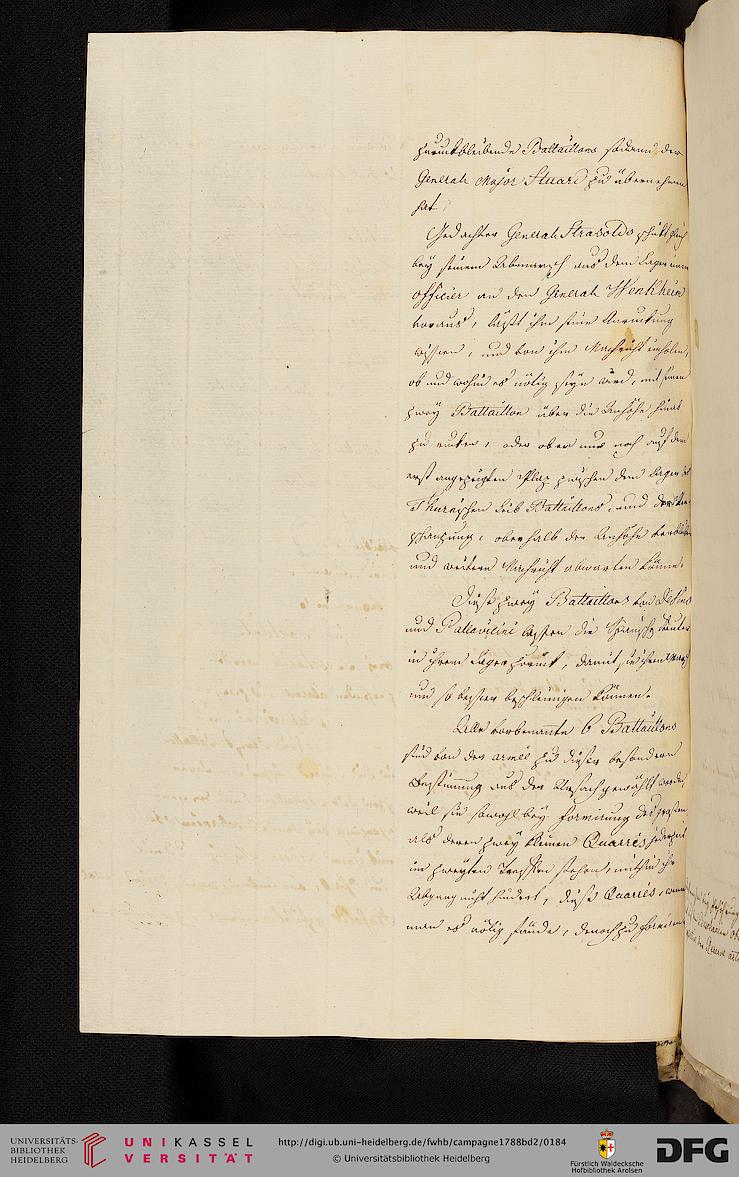 zurückbleibende Battaillons sodann der
General Major Stuard zu übernehmen
hat.
Gedachter General Strasoldo schickt gleich
bey seinem Abmarsch aus dem Lager einen
Officier an den General Wenkheim
voraus, läßt ihm seine Anrückung
wissen, und von ihm Nachricht einholen,
ob und wohin es nötig seyn wird, mit seinen
zwey Battaillon über die Anhöhe hinab
zu rucken, oder aber nur noch auf dem
erst angezeigten Plaz zwischen dem Lager des
Thurnischen Leib Battaillons, und der
schanzung, oberhalb der Anhöhe
und weitere Nachricht abwarten könne.
Diese zwey Battaillons von
und Pallavicini lassen die Spanische Reuter
in ihrem Lager zurück, damit sie ihren Marsch
um so besser beschleunigen können.
Alle vorbenannte 6 Battaillons
sind von der armée zu dieser besondern
Bestimmung aus der Ursach gewählt worden
weil sie sowohl bey Formirung des grossen
als deren zwey kleinen Quarrés jederzeit
im zweyten Treffen stehen, mithin ihr
Abgang nicht hindert, diese Quarrés, wann
man es nötig fände, dennoch zu formiren
UNIVERSITÄTS-
BIBLIOTHEK
HEIDELBERG
UNIKASSEL
VERSITÄT
http://digi.ub.uni-heidelberg.de/fwhb/campagne1788bd2/0184
© Universitätsbibliothek Heidelberg
Fürstlich Waldecksche
Hofbibliothek Arolsen
DFG